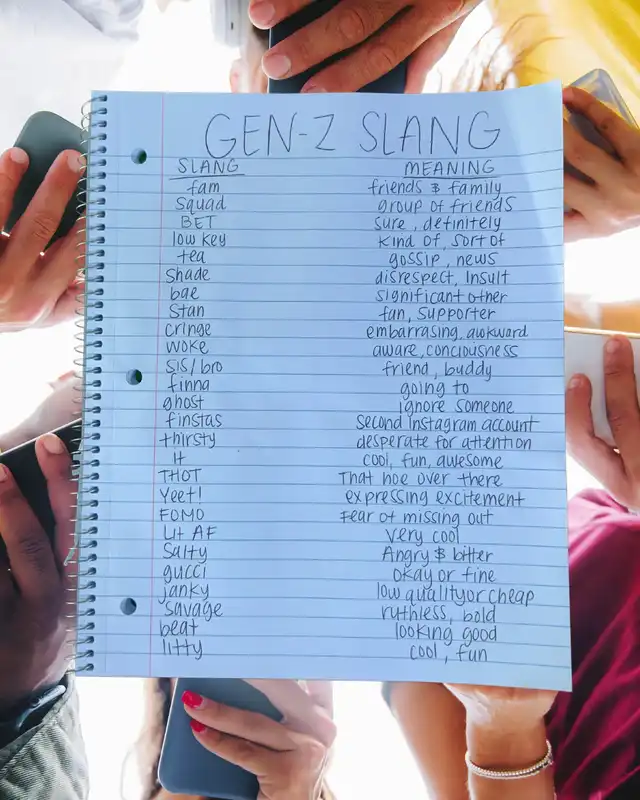 GEN-Z SLANG
SLANG MEANING
fam friends & family
Squad group of friends
BET sure, definitely
low key kind of, sort of
tea gossip, news
Shade disrespect, Insult
bae significant other
Stan fan, supporter
cringe embarrasing, awkward
WOKE aware, conciousness
SIS/bro friend, buddy
finna going to
ghost ignore someone
finstas second Instagram account
thirsty desperate for attention
It cool, fun, awesome
THOT That hoe over there
Yeet! expressing excitement
FOMO Fear of missing out
Lit AF very cool
Salty Angry & bitter
gucci okay or fine
janky low quality or cheap
Savage ruthless, bold
beat looking good
litty cool, fun